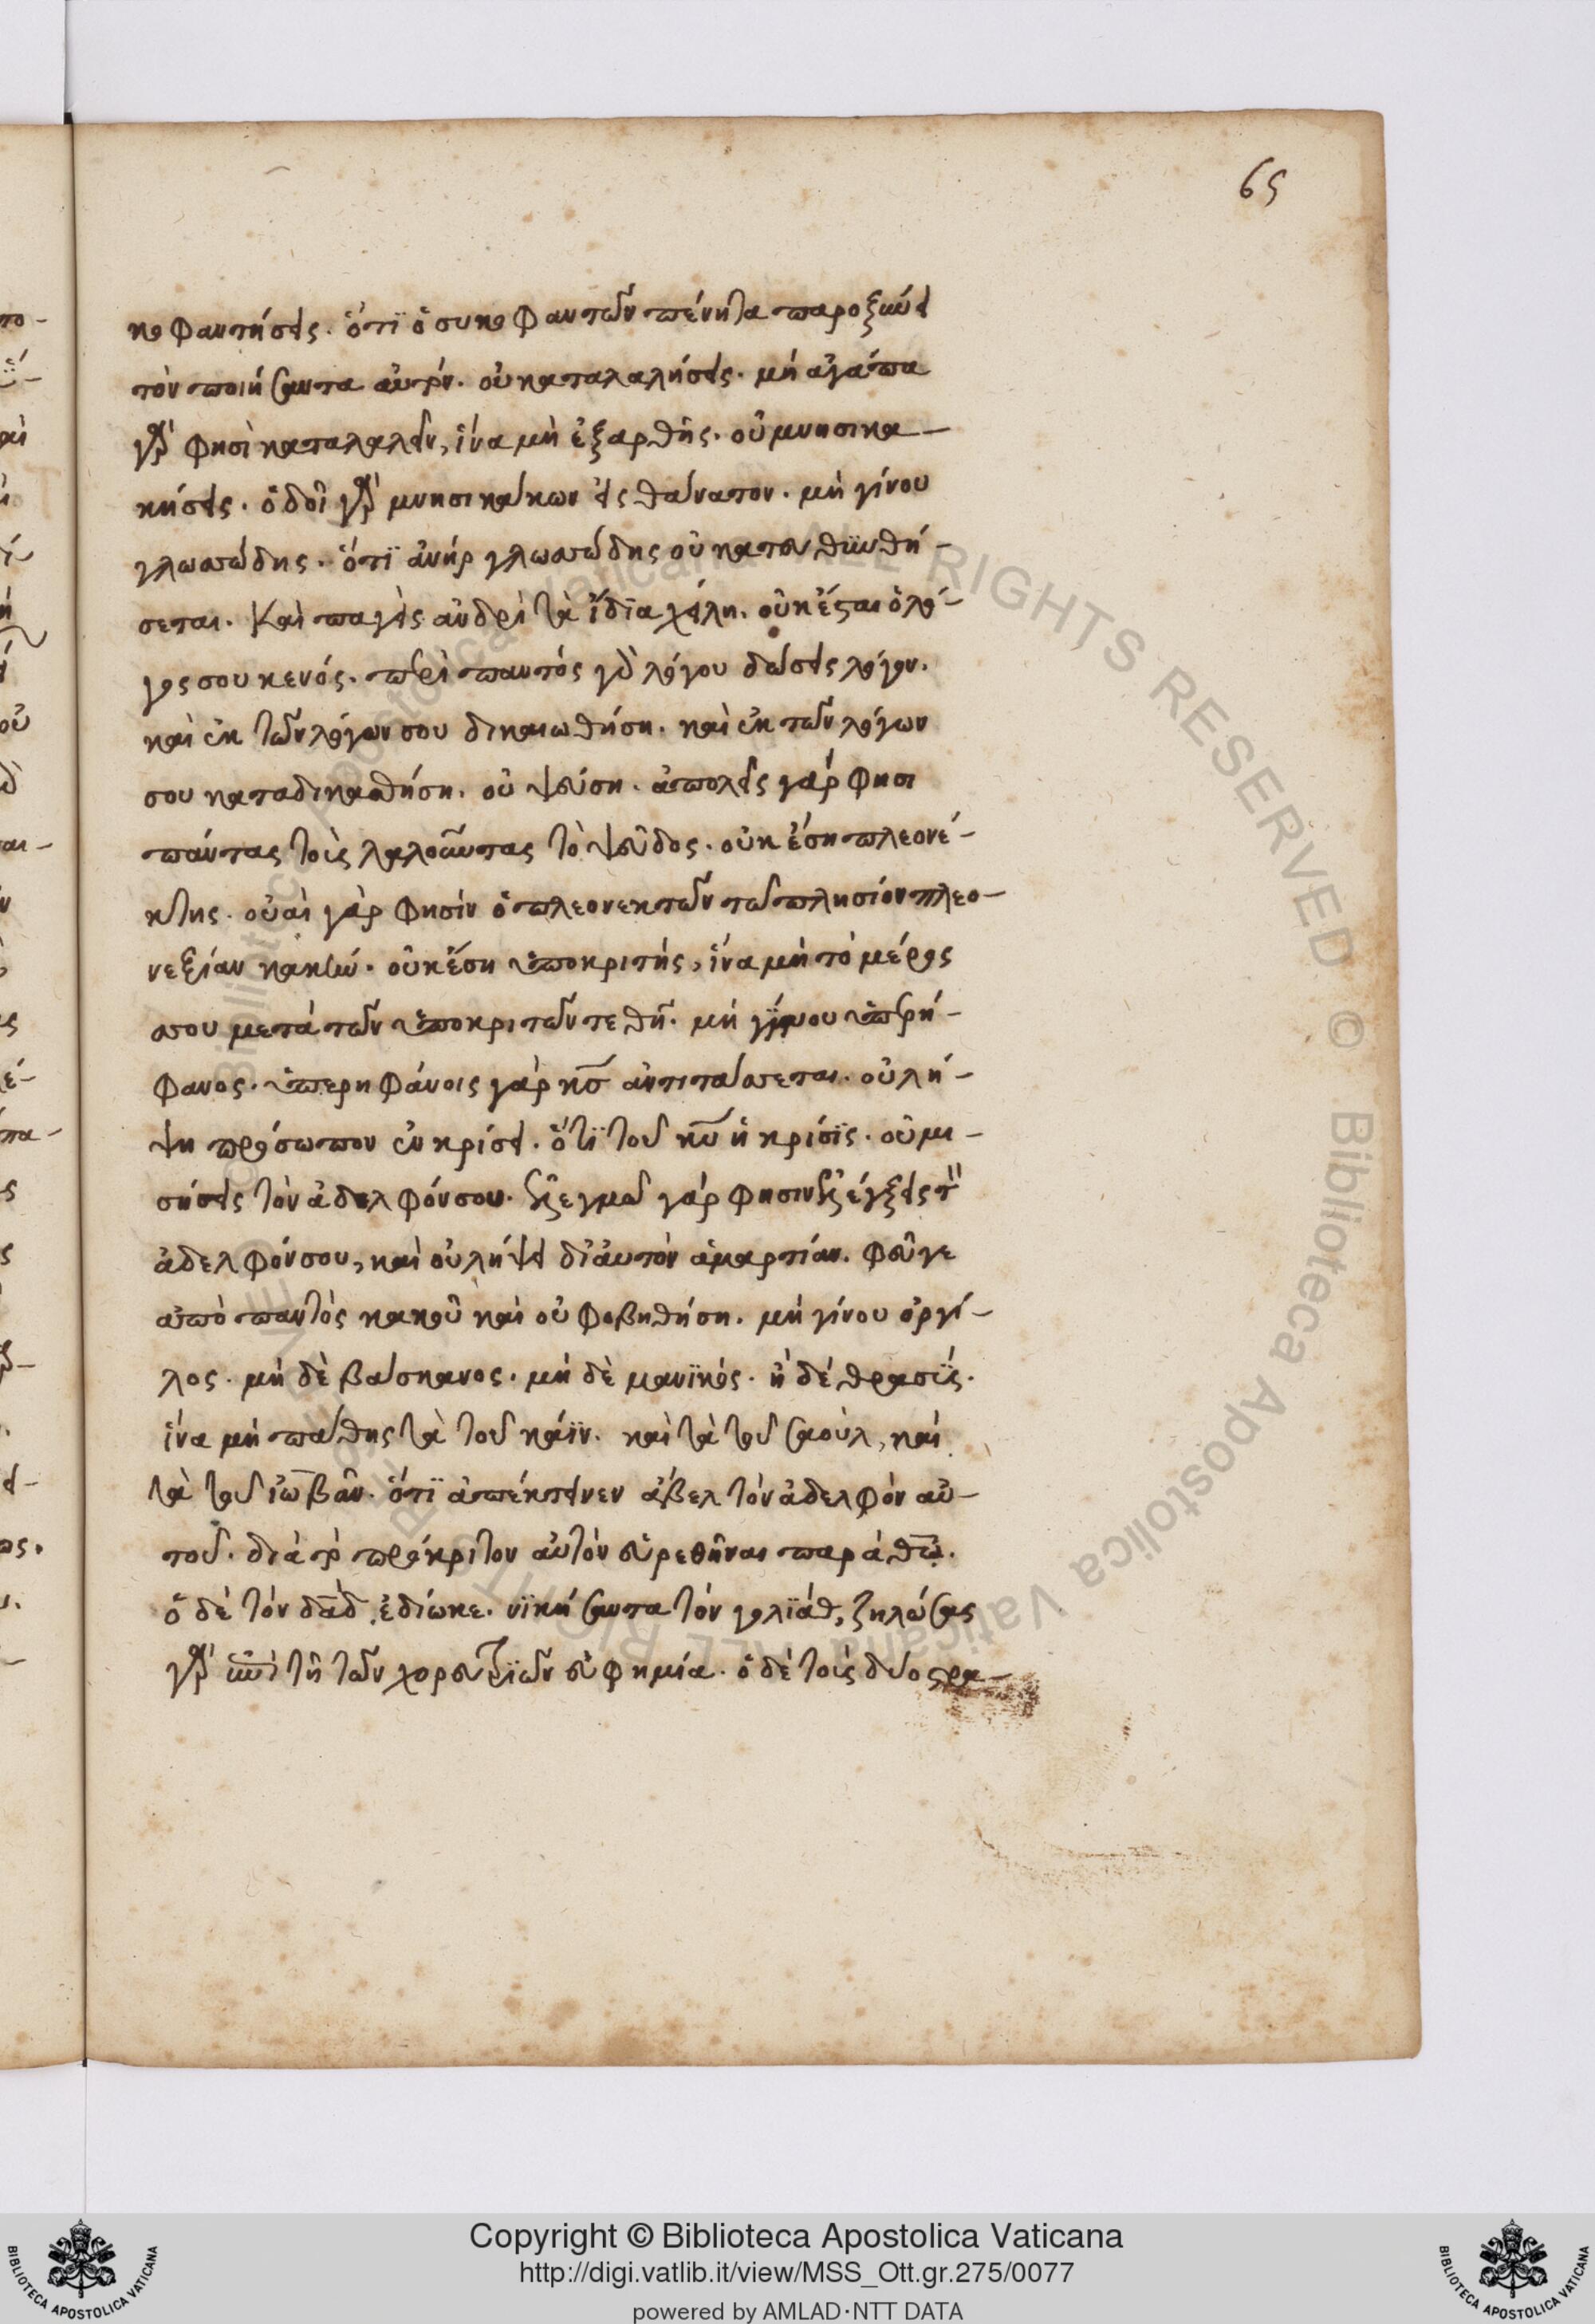 65
κοφαντήσεις. ὅτϊ ὁ συκοφαντῶν πένητα παροξύνει
τὸν ποιήσαντα αὐτόν. οὐ καταλαλήσεις. μὴ ἀγάπα
γάρ φησὶ καταλαλεῖν, ἵνα μὴ ἐξαρθῆς. οὐ μνησικα-
κήσεις. ὁδοὶ γάρ μνησικάκων εἰς θάνατον. μὴ γίνου
γλωσσώδης. ὅτϊ ἀνήρ γλωσσώδης οὐ κατευθϋνθή-
σεται. καὶ παγὶς ἀνδρὶ τὰ ἴδϊα χείλη. οὐκ ἔσται ὁ λό-
γος σου κενός. περὶ παντός γὰρ λόγου δώσεις λόγον.
καὶ ἐκ τῶν λόγων σου δικαιωθήση. καὶ ἐκ τῶν λόγων
σου καταδικασθήση. οὐ ψεύση. ἀπολεῖς γάρ φησι
πάντας τοὺς λαλοῦντας τὸ ψεῦδος. οὐκ ἔση πλεονέ-
κτης. οὐαὶ γὰρ φησίν ὁ πλεονεκτῶν τῶ πλησίον πλεο-
νεξίαν κακήν. οὐκ ἔση ὑποκριτής, ἵνα μὴ τὸ μέρος
σου μετά τῶν ὑποκριτῶν τεθῆ. μὴ γίνου ὑπερή-
φανος. ὑπερηφάνοις γὰρ κς ἀντιτάσσεται. οὐ λή-
ψη πρόσωπον ἐν κρίσει. ὅτϊ τοῦ κυ ἡ κρίσϊς. οὐ μι-
σήσεις τὸν ἀδελφόν σου. ἐλεγμῶ γάρ φησιν ἐλέγξεις τὸν
ἀδελφόν σου, καὶ οὐ λήψει δι αὐτὸν ἁμαρτίαν. φεῦγε
ἀπὸ παντὸς κακοῦ καὶ οὐ φοβηθήση. μὴ γίνου ὀργί-
λος. μὴ δὲ βάσκανος. μὴ δὲ μανϊκός. ἠ δέ θρασϋς.
ἵνα μὴ πάθης τὰ τοῦ κάϊν. καὶ τὰ τοῦ σαούλ, καὶ
τὰ τοῦ ἰωβᾶν. ὅτϊ ἀπέκτεινεν ἄβελ τὸν ἀδελφόν αὐ-
τοῦ. διὰ τὸ πρόκριτον αὐτόν εὑρεθῆναι παρά θω.
ὁ δὲ τόν δαδ ἐδίωκε. νϊκήσαντα τόν γολϊάθ, ζηλώσας
γάρ ἐπὶ τῆ τῶν χορευτρϊῶν εὐφημία. ὁ δὲ τοὺς δύο στρα-
Copyright © Biblioteca Apostolica Vaticana
http://digi.vatlib.it/view/MSS_Ott.gr.275/0077
powered by AMLAD·NTT DATA